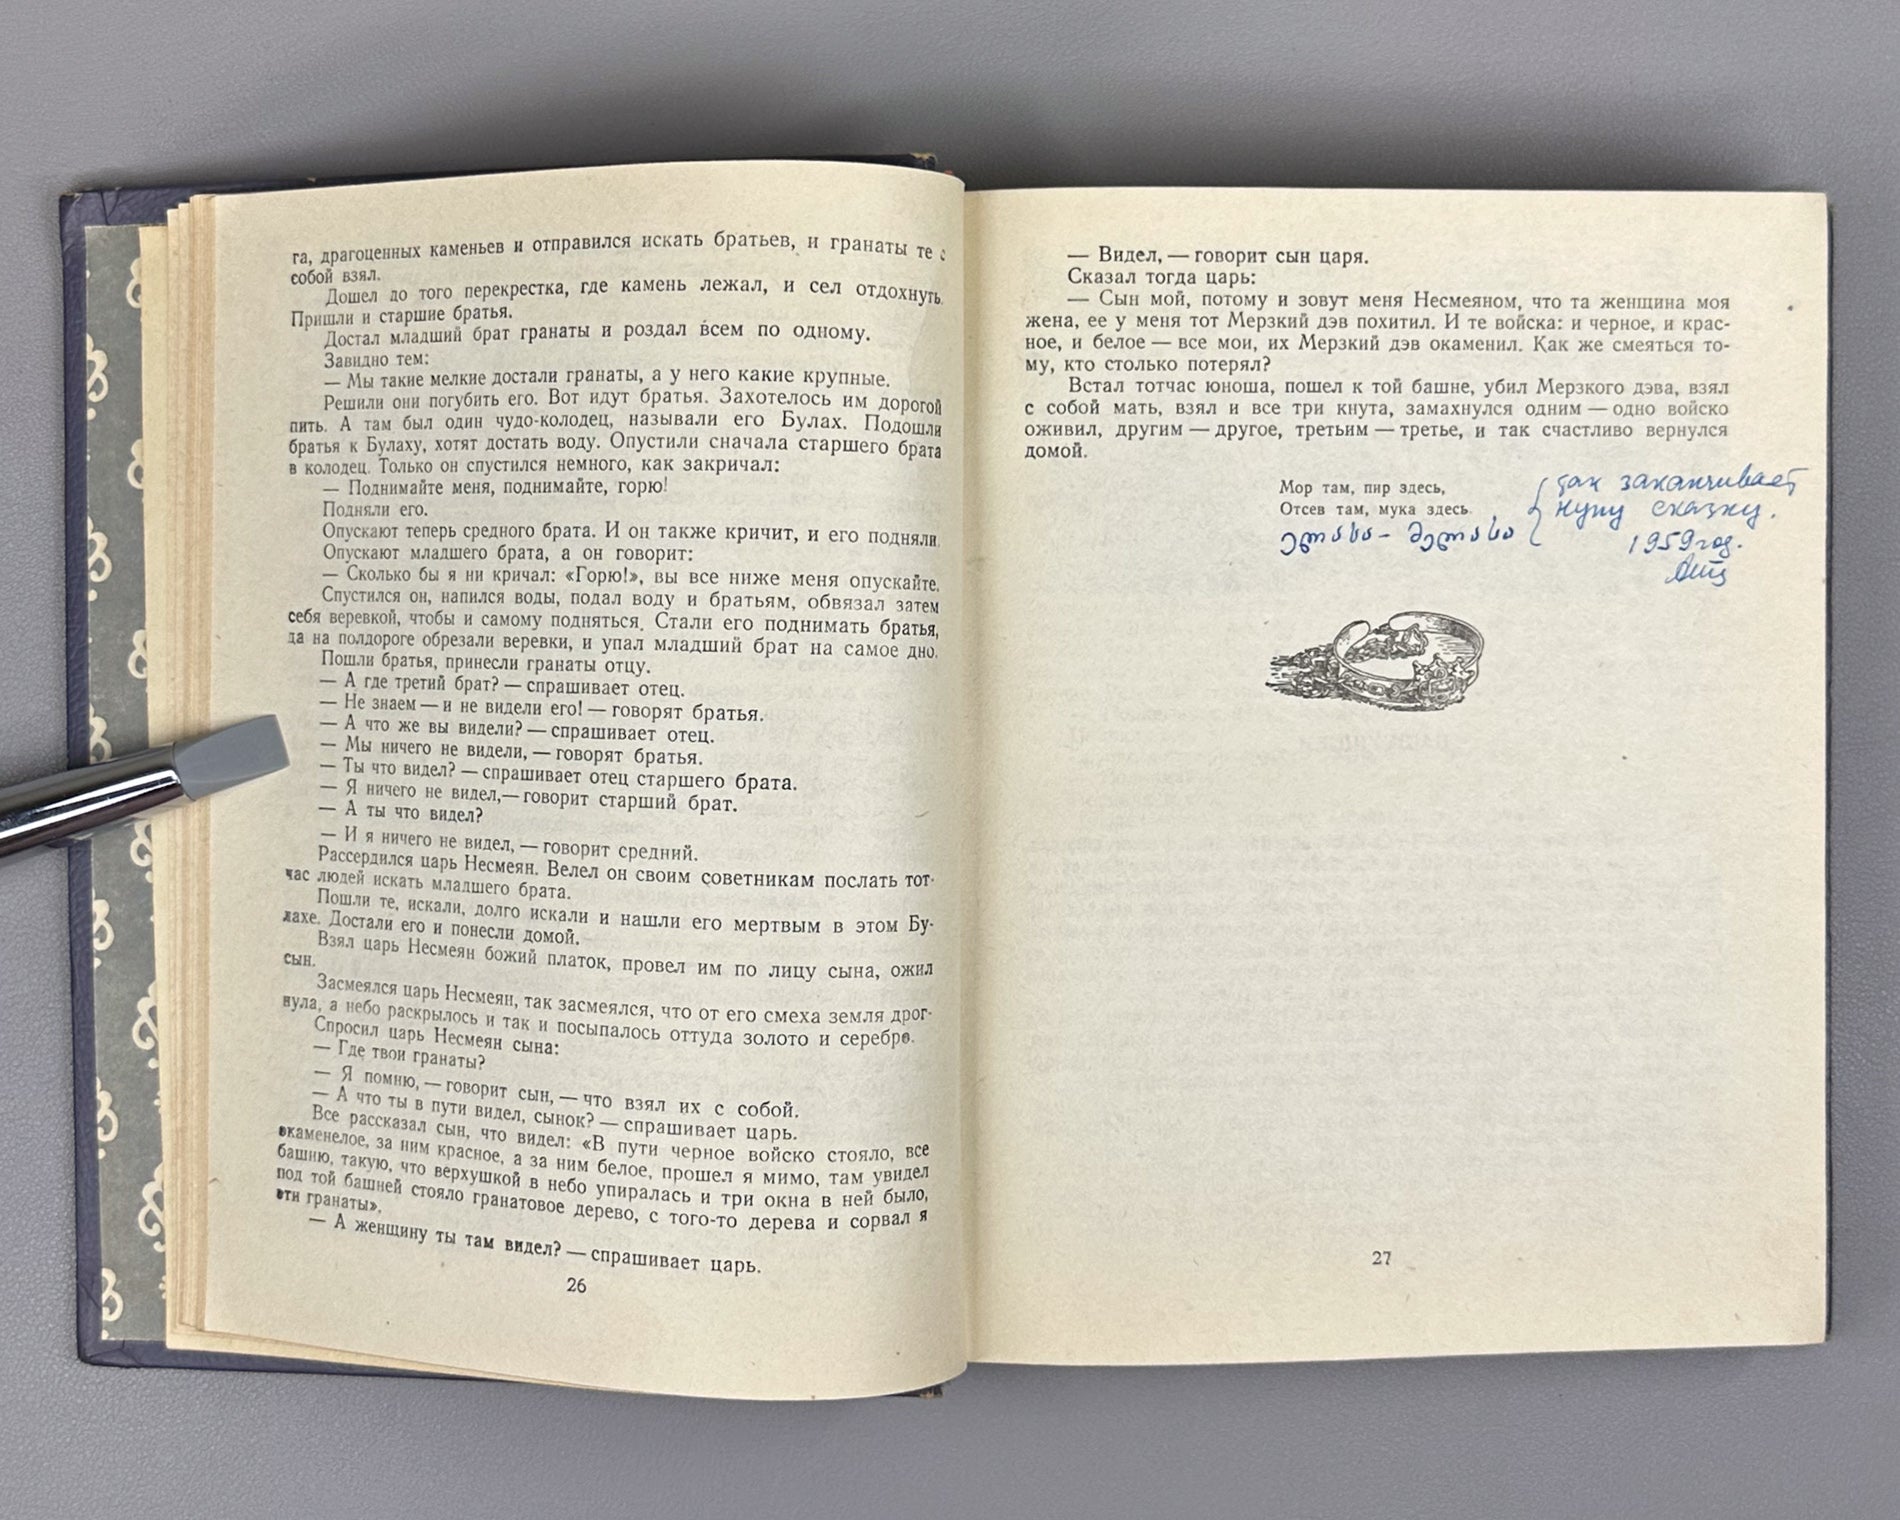 га, драгоценных каменьев и отправился искать братьев, и гранаты те с
собой взял.
Дошел до того перекрестка, где камень лежал, и сел отдохнуть.
Пришли и старшие братья.
Достал младший брат гранаты и роздал всем по одному.
Завидно тем:
— Мы такие мелкие достали гранаты, а у него какие крупные.
Решили они погубить его. Вот идут братья. Захотелось им дорогой
пить. А там был один чудо-колодец, называли его Булах. Подошли
братья к Булаху, хотят достать воду. Опустили сначала старшего брата
в колодец. Только он спустился немного, как закричал:
— Поднимайте меня, поднимайте, горю!
Подняли его.
Опускают теперь средного брата. И он также кричит, и его подняли.
Опускают младшего брата, а он говорит:
— Сколько бы я ни кричал: «Горю!», вы все ниже меня опускайте.
Спустился он, напился воды, подал воду и братьям, обвязал затем
себя веревкой, чтобы и самому подняться. Стали его поднимать братья,
да на полдороге обрезали веревки, и упал младший брат на самое дно.
Пошли братья, принесли гранаты отцу.
— А где третий брат? — спрашивает отец.
— Не знаем — и не видели его! — говорят братья.
— А что же вы видели? — спрашивает отец.
— Мы ничего не видели, — говорят братья.
— Ты что видел? — спрашивает отец старшего брата.
— Я ничего не видел,— говорит старший брат.
— А ты что видел?
— И я ничего не видел, — говорит средний.
Рассердился царь Несмеян. Велел он своим советникам послать тот-
час людей искать младшего брата.
Пошли те, искали, долго искали и нашли его мертвым в этом Бу-
лахе. Достали его и понесли домой.
Взял царь Несмеян божий платок, провел им по лицу сына, ожил
сын.
Засмеялся царь Несмеян, так засмеялся, что от его смеха земля дрог-
нула, а небо раскрылось и так и посыпалось оттуда золото и серебро.
Спросил царь Несмеян сына:
— Где твои гранаты?
— Я помню, — говорит сын, — что взял их с собой.
— А что ты в пути видел, сынок? — спрашивает царь.
Все рассказал сын, что видел: «В пути черное войско стояло, все
окаменелое, за ним красное, а за ним белое, прошел я мимо, там увидел
башню, такую, что верхушкой в небо упиралась и три окна в ней было,
под той башней стояло гранатовое дерево, с того-то дерева и сорвал я
эти гранаты».
— А женщину ты там видел? — спрашивает царь.
26
— Видел, — говорит сын царя.
Сказал тогда царь:
— Сын мой, потому и зовут меня Несмеяном, что та женщина моя
жена, ее у меня тот Мерзкий дэв похитил. И те войска: и черное, и крас-
ное, и белое — все мои, их Мерзкий дэв окаменил. Как же смеяться то-
му, кто столько потерял?
Встал тотчас юноша, пошел к той башне, убил Мерзкого дэва, взял
с собой мать, взял и все три кнута, замахнулся одним — одно войско
оживил, другим — другое, третьим — третье, и так счастливо вернулся
домой.
Мор там, пир здесь,
Отсев там, мука здесь.
ელასა - მელასა
так заканчивает
сказку.
1959 год.
27